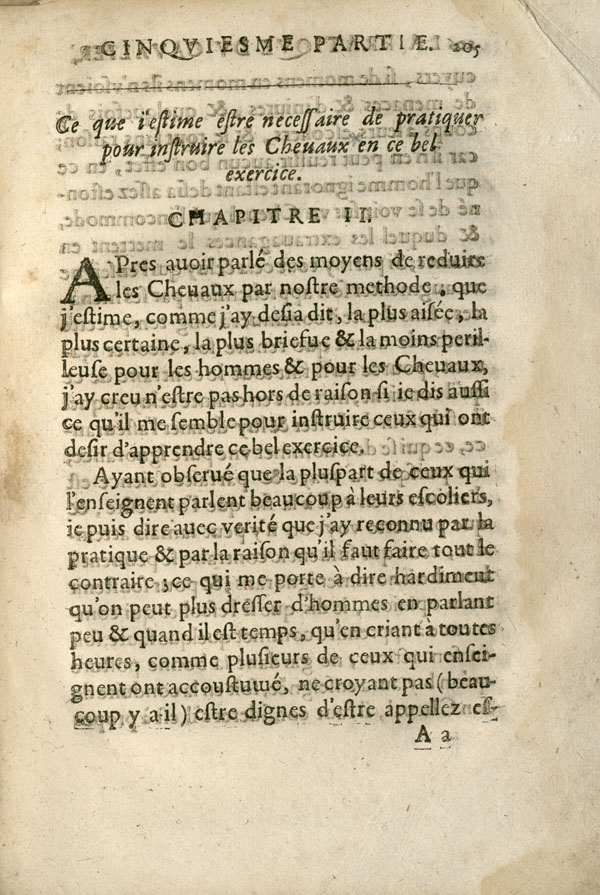 CINQVIESME PARTIE. 205
Ce que i'eſtime eſtre neceſſaire de pratiquer
pour inſtruire les Cheuaux en ce bel
exercice.
CHAPITRE II.
APres auoir parlé des moyens de reduire
les Cheuaux par noſtre methode, que
j'eſtime, comme j'ay deſia dit, la plus aiſée, la
plus certaine, la plus briefue & la moins peril-
leuſe pour les hommes & pour les Cheuaux,
j'ay creu n'eſtre pas hors de raiſon ſi ie dis auſſi
ce qu'il me ſemble pour inſtruire ceux qui ont
deſir d'apprendre ce bel exercice.
Ayant obſerué que la pluſpart de ceux qui
l'enſeignent parlent beaucoup à leurs eſcoliers,
ie puis dire auec verité que j'ay reconnu par la
pratique & par la raiſon qu'il faut faire tout le
contraire, ce qui me porte à dire hardiment
qu'on peut plus dreſſer d'hommes en parlant
peu & quand il eſt temps, qu'en criant à toutes
heures, comme pluſieurs de ceux qui enſei-
gnent ont accouſtumé, ne croyant pas (beau-
coup y a-il) eſtre dignes d'eſtre appellez eſ-
A a